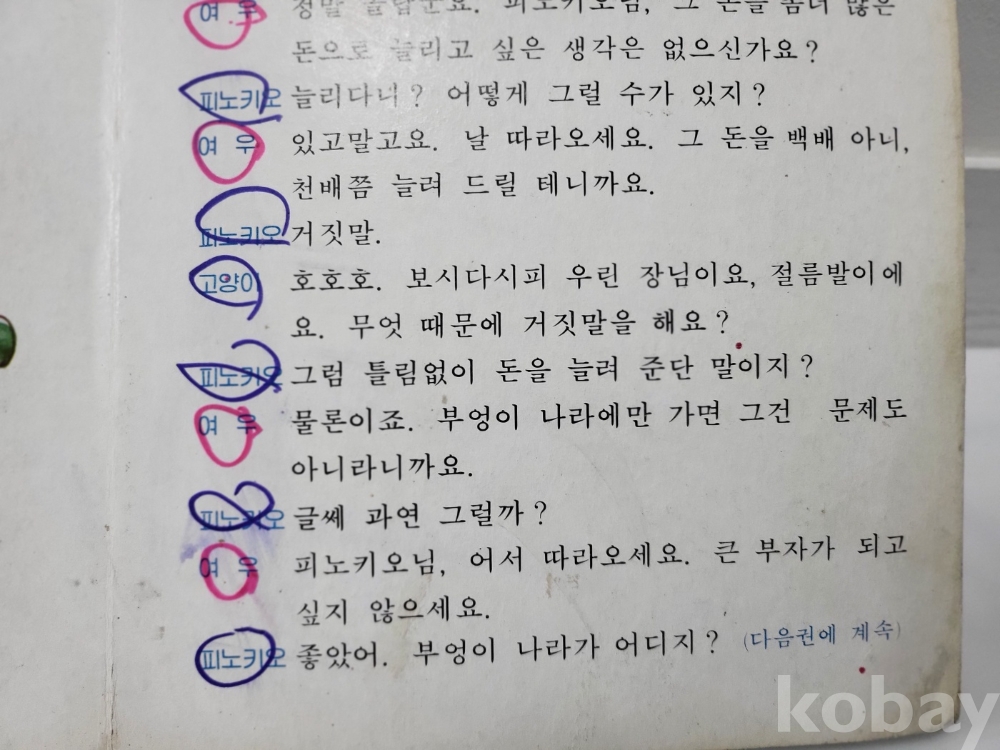 여 우 정말 놀랍군요. 피노키오님, 그 돈을 좀더 많은
돈으로 늘리고 싶은 생각은 없으신가요?
피노키오 늘리다니? 어떻게 그럴 수가 있지?
여 우 있고말고요. 날 따라오세요. 그 돈을 백배 아니,
천배쯤 늘려 드릴 테니까요.
피노키오 거짓말.
고양이 호호호. 보시다시피 우린 장님이요, 절름발이에
요. 무엇 때문에 거짓말을 해요?
피노키오 그럼 틀림없이 돈을 늘려 준단 말이지?
여 우 물론이죠. 부엉이 나라에만 가면 그건 문제도
아니라니까요.
피노키오 글쎄 과연 그럴까?
여 우 피노키오님, 어서 따라오세요. 큰 부자가 되고
싶지 않으세요.
피노키오 좋았어. 부엉이 나라가 어디지? (다음권에 계속)
kobay